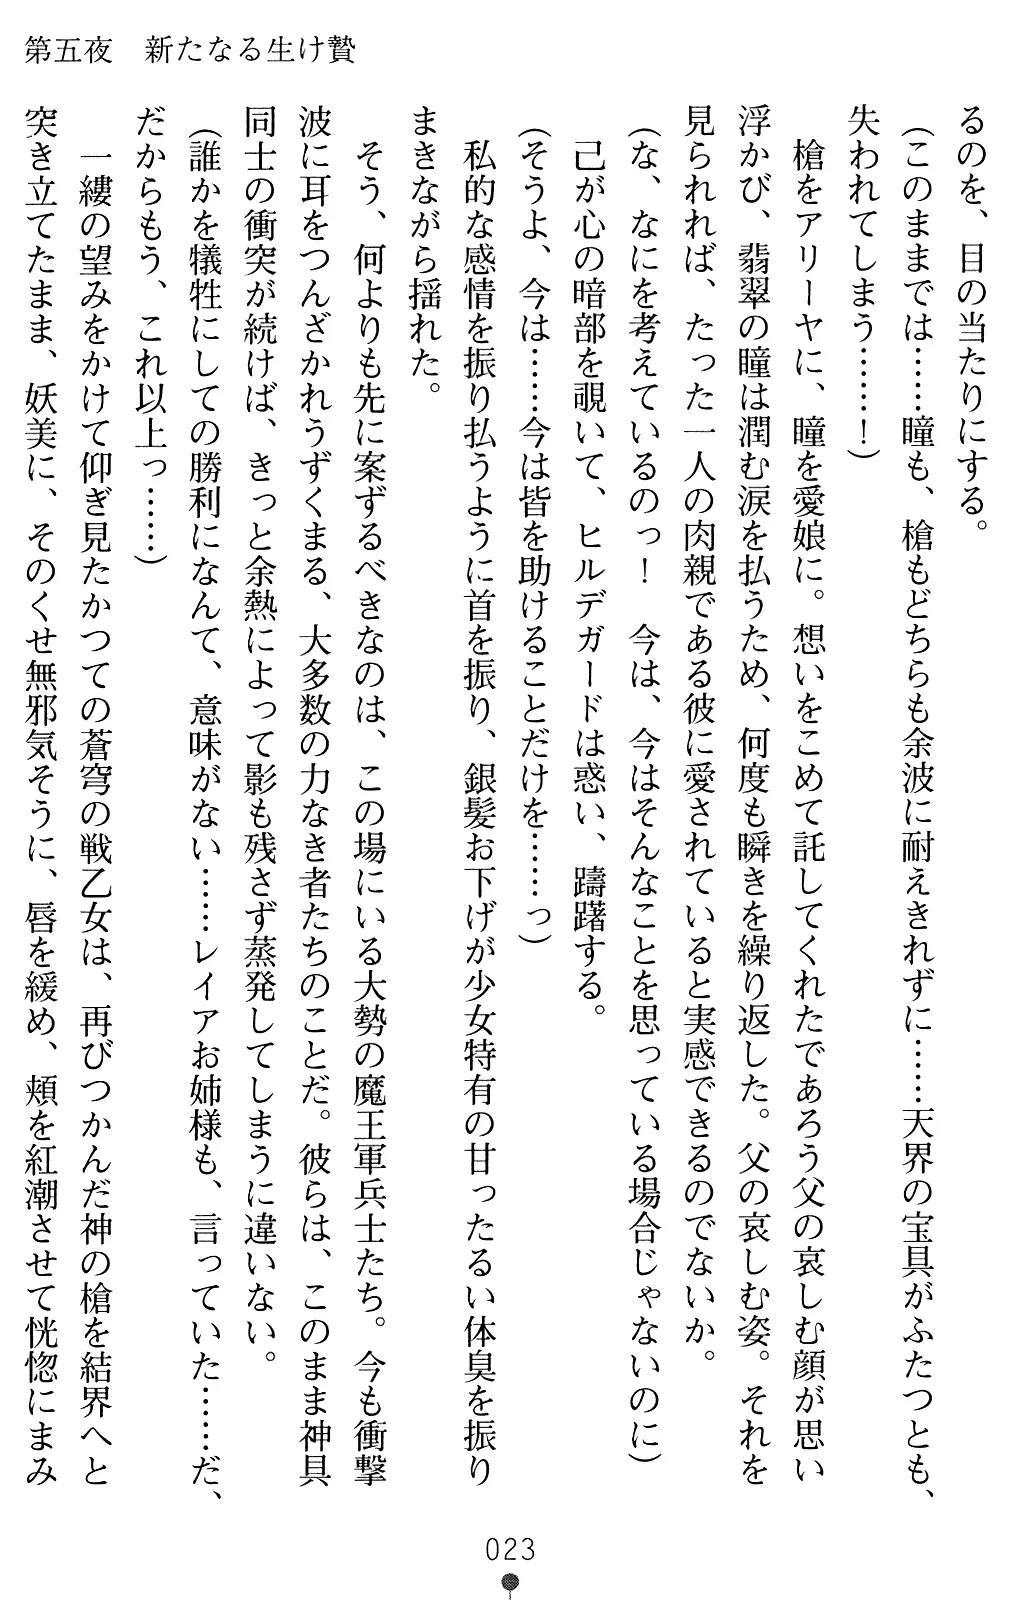 第五夜　新たなる生け贄
るのを、目の当たりにする。
（このままでは……瞳も、槍もどちらも余波に耐えきれずに……天界の宝具がふたつとも、
失われてしまう……！）
　槍をアリーヤに、瞳を愛娘に。想いをこめて託してくれたであろう父の哀しむ顔が思い
浮かび、翡翠の瞳は潤む涙を払うため、何度も瞬きを繰り返した。父の哀しむ姿。それを
見られれば、たった一人の肉親である彼に愛されていると実感できるのでないか。
（な、なにを考えているのっ！　今は、今はそんなことを思っている場合じゃないのに）
　己が心の暗部を覗いて、ヒルデガードは惑い、躊躇する。
（そうよ、今は……今は皆を助けることだけを……っ）
　私的な感情を振り払うように首を振り、銀髪お下げが少女特有の甘ったるい体臭を振り
まきながら揺れた。
　そう、何よりも先に案ずるべきなのは、この場にいる大勢の魔王軍兵士たち。今も衝撃
波に耳をつんざかれうずくまる、大多数の力なき者たちのことだ。彼らは、このまま神具
同士の衝突が続けば、きっと余熱によって影も残さず蒸発してしまうに違いない。
（誰かを犠牲にしての勝利になんて、意味がない……レイアお姉様も、言っていた……だ、
だからもう、これ以上っ……）
　一縷の望みをかけて仰ぎ見たかつての蒼穹の戦乙女は、再びつかんだ神の槍を結界へと
突き立てたまま、妖美に、そのくせ無邪気そうに、唇を緩め、頬を紅潮させて恍惚にまみ
023